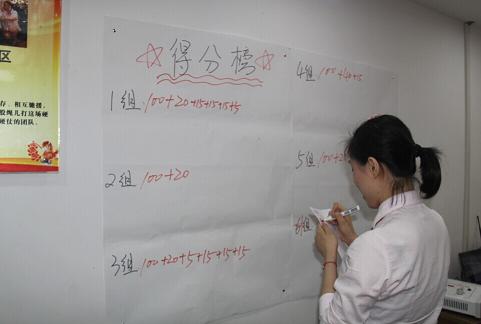 ☆得分榜☆
1组 100+20+15+15+15+5
2组 100+20
3组 100+20+5+15+15+15
4组 100+40+15
5组 100+2
组
区
存、相互驰援,
股绳儿打这场硬
硬仗的团队.